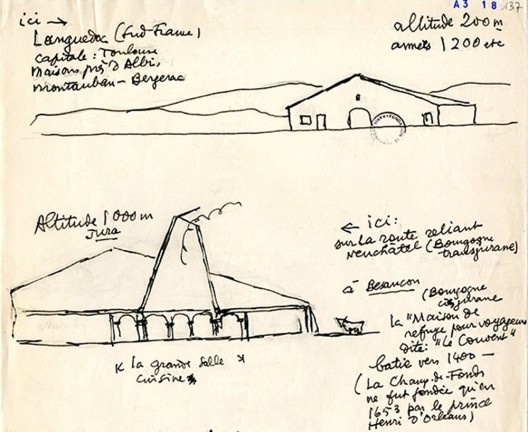 A3 18 137
ici →
Languedoc (Sud-France)
capitale: Toulouse
maisons près d'Albi,
montauban - Bergerac
altitude 200 m
années 1200 etc
Altitude 1000 m
Jura
← ici:
sur la route reliant
neuchâtel (Bourgogne
transjurane)
à Besançon (Bourgogne
cisjurane
la "Maison de
refuge pour voyageurs
dite: "Le Couvent"
batie vers 1400 —
(La Chaux-de-Fonds
ne fut fondée qu'en
1653 par le prince
Henri D'Orléans)
la grande salle
cuisine